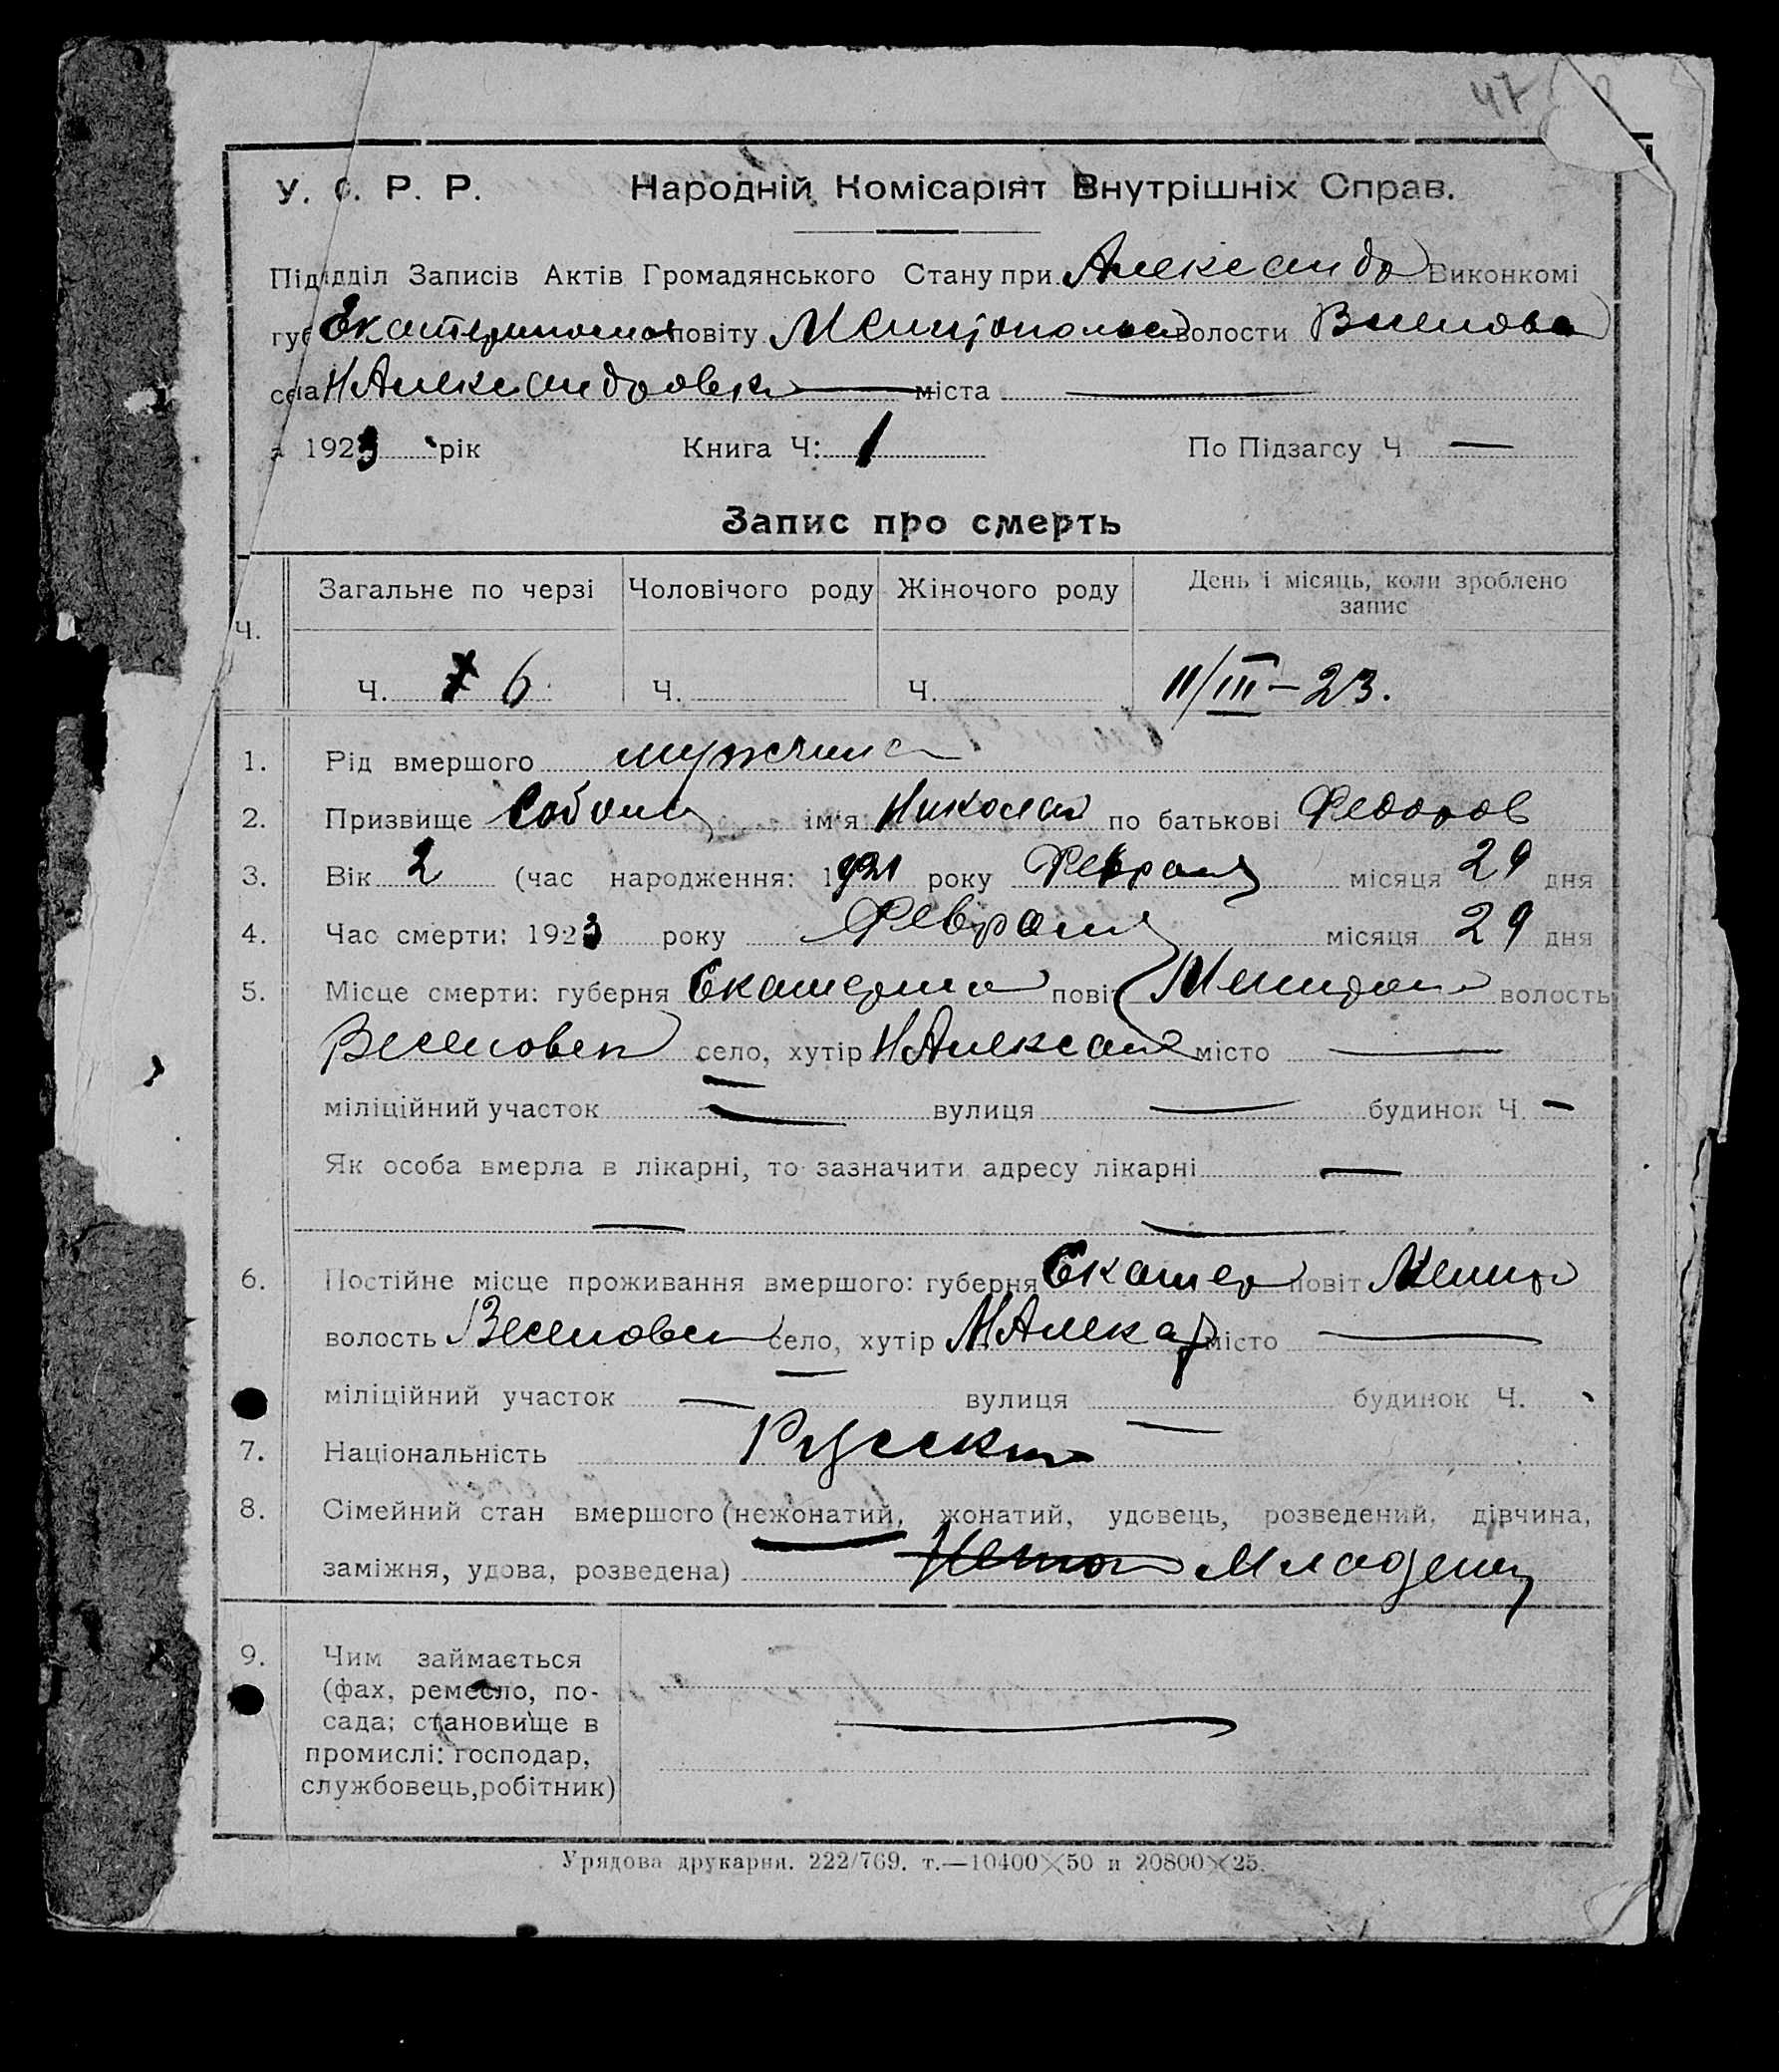 47
У. С. Р. Р. Народній Комісаріят Внутрішніх Справ.
Підвідділ Записів Актів Громадянського Стану при Александр Виконкомі
губ Екатеринослав повіту Мелитополь волости
села Н Александровки — міста —
1923 рік Книга Ч: 1 По Підзагсу Ч —
Запис про смерть
Ч. Загальне по черзі Чоловічого роду Жіночого роду День і місяць, коли зроблено
запис
Ч. 6 Ч. Ч. 11/III–23.
1. Рід вмершого мужчина
2. Призвище ім'я Николай по батькові Федоров
3. Вік 2 (час народження: 1921 року Февраля місяця 29 дня
4. Час смерти: 1923 року Февраля місяця 29 дня
5. Місце смерти: губерня Екатерино повіт волость
Веселовск село, хутір Н Александ місто —
міліційний участок — вулиця — будинок Ч. —
Як особа вмерла в лікарні, то зазначити адресу лікарні —
— —
6. Постійне місце проживання вмершого: губерня Екатер повіт Мелит
волость Веселовск село, хутір Н Алекса місто —
міліційний участок — вулиця — будинок Ч.
7. Національність Русский
8. Сімейний стан вмершого (нежонатий, жонатий, удовець, розведений, дівчина,
заміжня, удова, розведена) Младенец
9. Чим займається
(фах, ремесло, по-
сада; становище в
промислі: господар,
службовець, робітник)
—
Урядова друкарня. 222/769. т.—10400×50 и 20800×25.